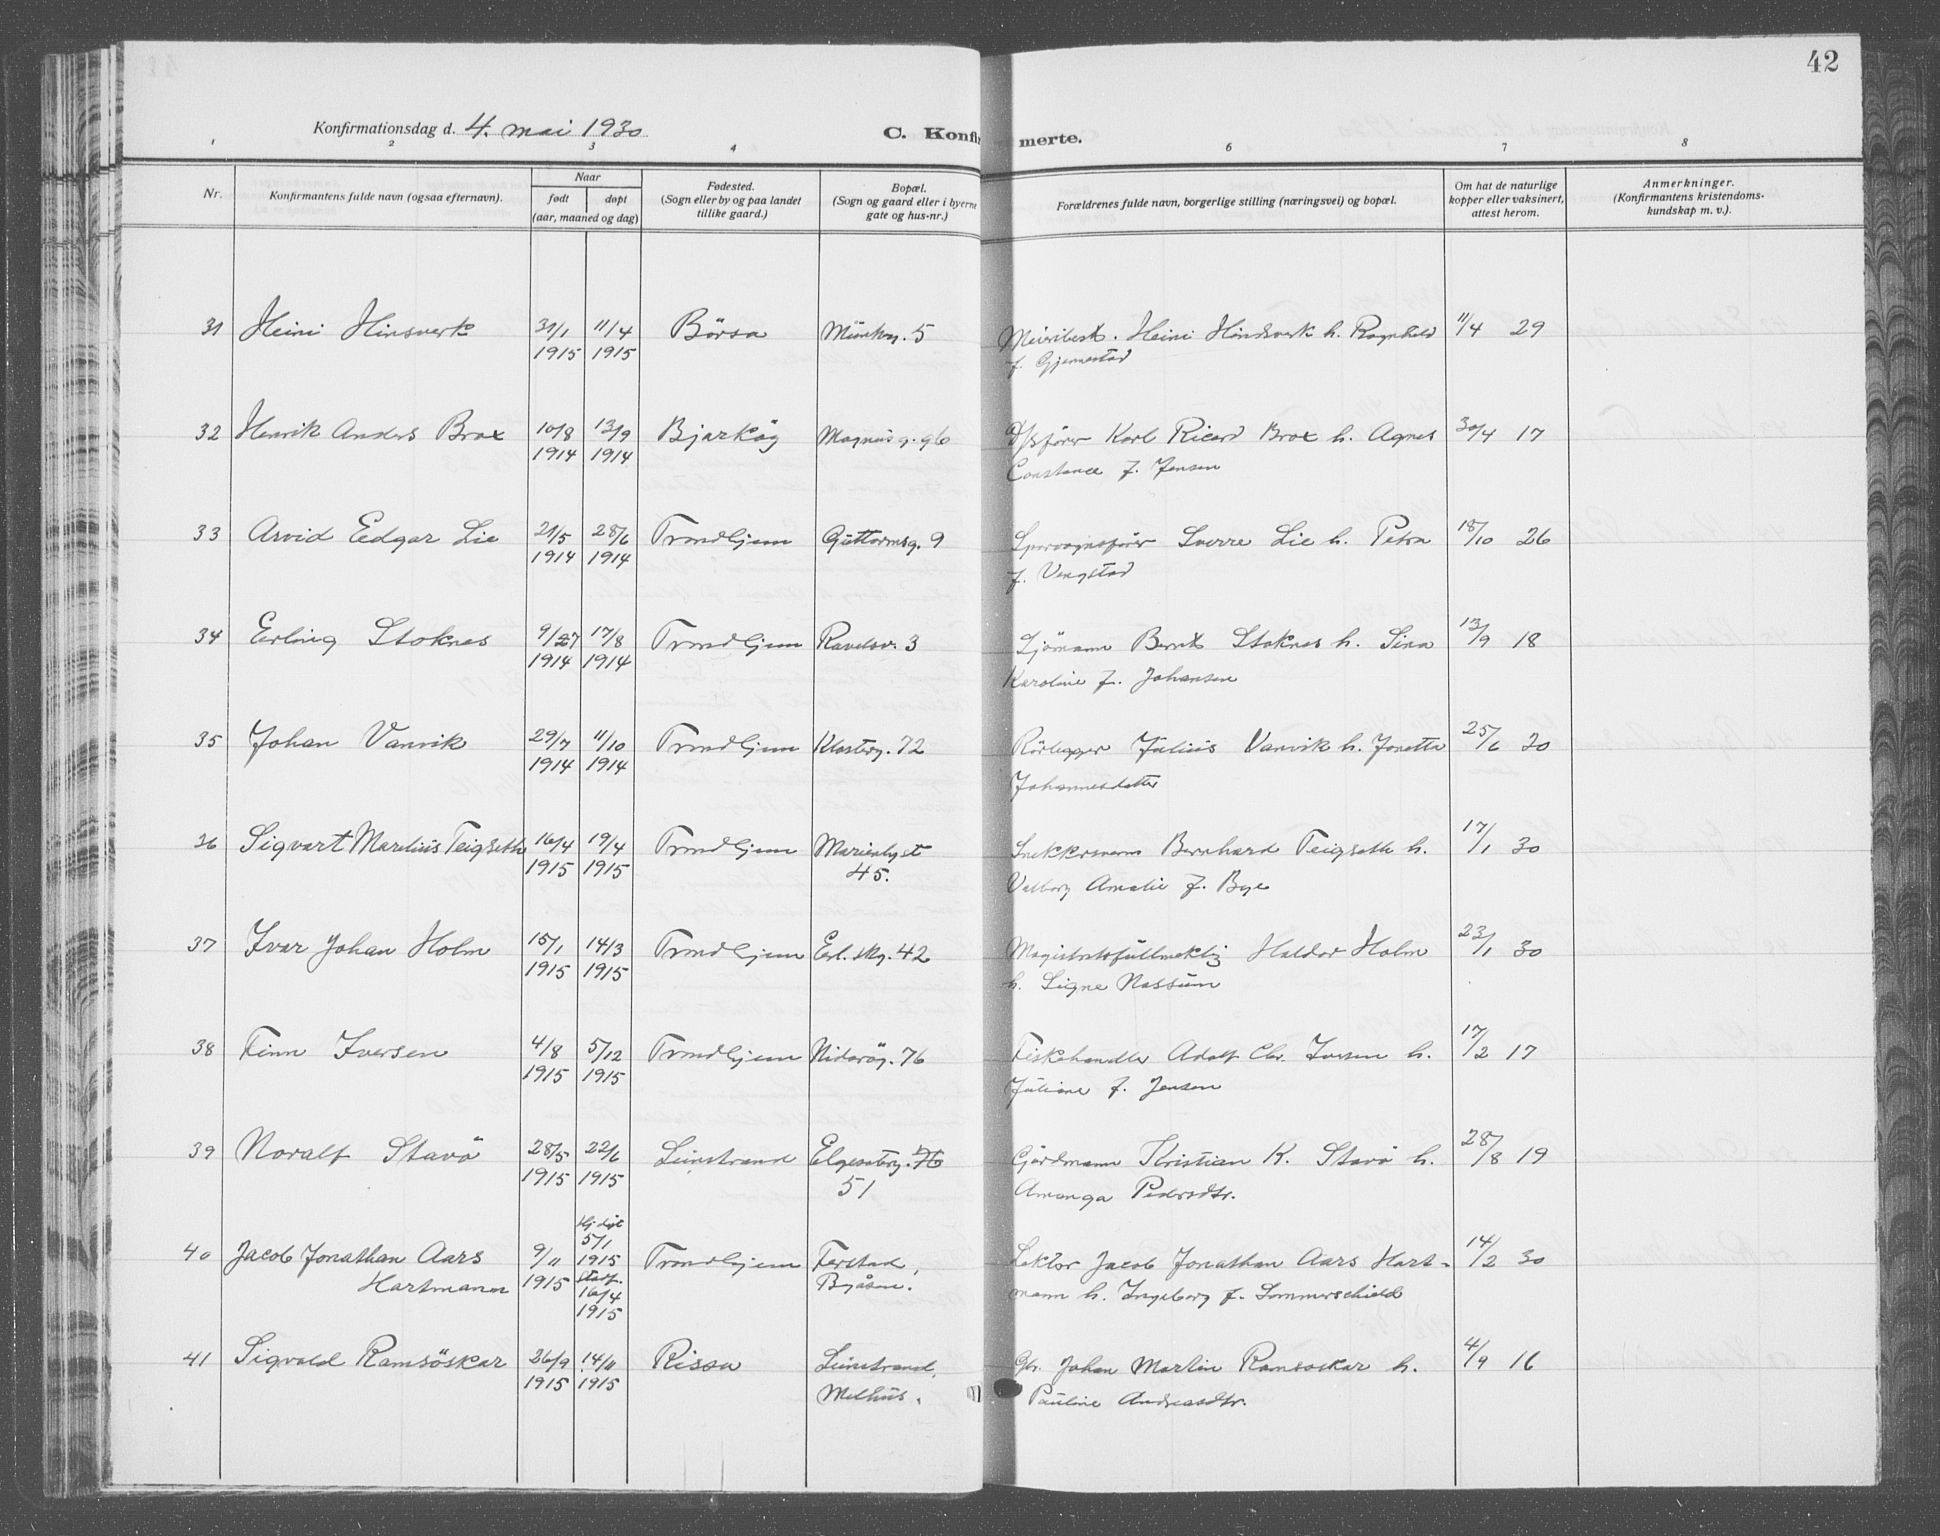 42
Konfirmationsdag d. 4. mai 1930
C. Konfirmerte.
1 2 3 4 6 7 8
Nr.
Konfirmantens fulde navn (ogsaa efternavn).
Naar
født døpt
(aar, maaned og dag)
Fødested.
(Sogn eller by og paa landet
tillike gaard.)
Bopæl.
(Sogn og gaard eller i byerne
gate og hus-nr.)
Forældrenes fulde navn, borgerlige stilling (næringsvei) og bopæl.
Om hat de naturlige
kopper eller vaksinert,
attest herom.
Anmerkninger.
(Konfirmantens kristendoms-
kundskap m. v.).
31 Heini Hinsverk 31/1 11/4 Børsa Munkg. 5 Heini Hindsverk h. Ragnhild 11/4 29
1915 1915 f. Gjennestad
32 Henrik Anders Brox 10/8 13/9 Bjarköy Magnusg. 96 D/sfører Karl Ricard Brox h. Agnes 30/4 17
1914 1914 Constance f. Jensen
33 Arvid Edgar Lie 21/5 28/6 Trondhjem Guttormsg. 9 Sporvognsfører Sverre Lie h. Petra 18/10 26
1914 1914 f. Vengstad
34 Erling Stoknes 9/27 17/8 Trondhjem 3 Sjömann Bernt Stoknes h. Sina 13/9 18
1914 1914 Karoline f. Johansen
35 Johan Vanvik 29/7 11/10 Trondhjem Klosterg. 72 Rörlegger Julius Vanvik h. Jonetta 25/6 20
1914 1914 Johannesdatter
36 Sigvart Marelius Teigseth 16/4 19/4 Trondhjem Marienlyst Snekkersvenn Bernhard Teigseth h. 17/1 30
1915 1915 45. Valborg Amalie f. Bye
37 Ivar Johan Holm 15/1 14/3 Trondhjem Erl. skg. 42 Magistratsfullmektig Haldor Holm 23/1 30
1915 1915 h. Signe Nassum
38 Finn Iversen 4/8 5/12 Trondhjem Nidaröy. 76 Fiskehandler Adolf Chr. Iversen h. 17/2 17
1915 1915 Juliane f. Jensen
39 Noralf Stavö 28/5 22/6 Leinstrand Elgeseterg. 76 Gårdmann Kristian K. Stavö h. 28/8 19
1915 1915 51 Amanga Pedersdtr.
40 Jacob Jonathan Aars 9/11 Hj. døpt 5/1 1915 Trondhjem Ferstad, Lektor Jacob Jonathan Aars Hart- 14/2 30
Hartmann 1915 Stadf. 16/4 1915 Byåsen. mann h. Ingeborg f. Sommerschield
41 Sigvald Ramsöskar 26/9 14/11 Rissa Leinstrand, Gbr. Johan Martin Ramsöskar h. 4/9 16
1915 1915 Melhus. Pauline Andreasdtr.